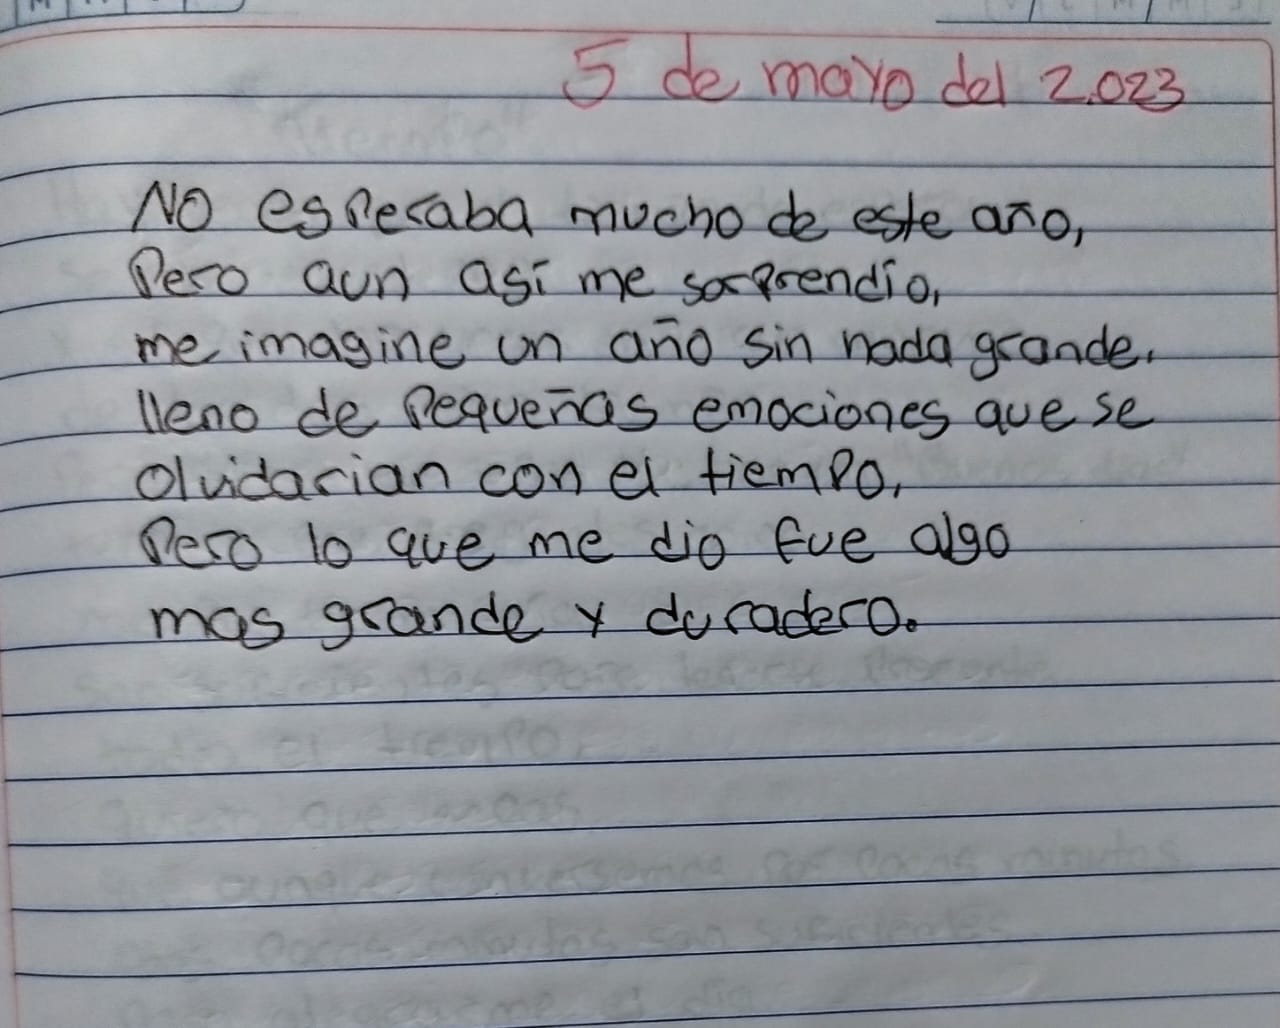 5 de mayo del 2.023
No esperaba mucho de este año,
Pero aun así me sorprendío,
me imagine un año sin nada grande.
lleno de Pequeñas emociones que se
olvidarian con el tiempo,
Pero lo que me dio fue algo
mas grande y duradero.